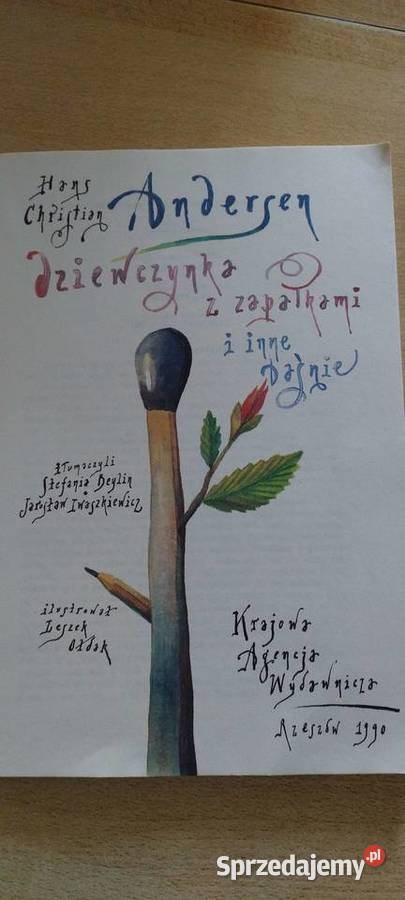 Hans
Christian
Andersen
dziewczynka
z zapałkami
i inne
baśnie
tłumaczyli
Stefania Beylin
Jarosław Iwaszkiewicz
ilustrował
Leszek
Ołdak
Krajowa
Agencja
Wydawnicza
Rzeszów 1990
Sprzedajemy.pl